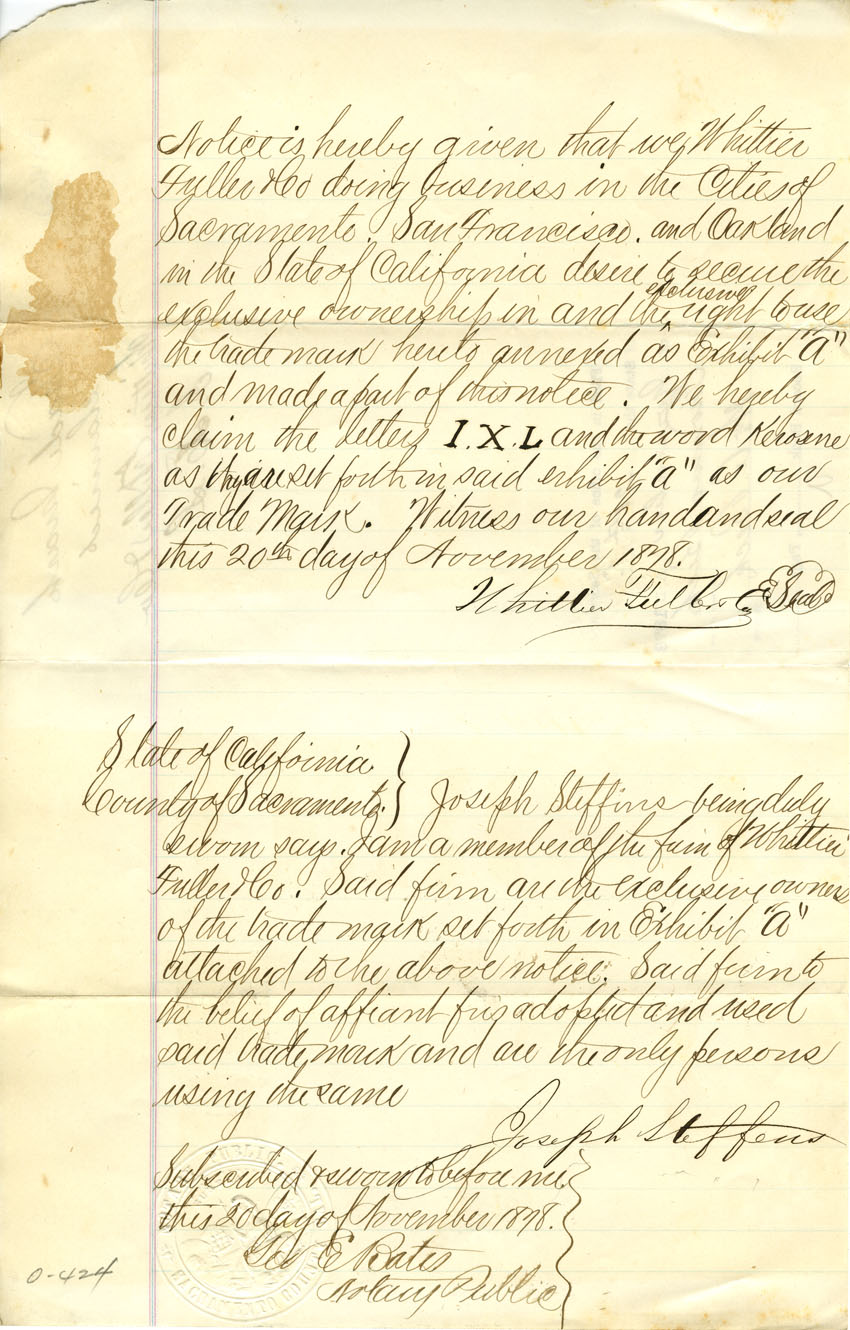 Notice is hereby given that we, Whittier
Fuller & Co doing business in the Cities of
Sacramento. San Francisco. and Oakland
in the State of California desire to secure the
exclusive
exclusive ownership in and the ^ right to use
the trade mark hereto annexed as Exhibit "A"
and made a part of this notice. We hereby
claim the letters I.X.L and the word Kerosene
as they are set forth in said exhibit "A" as our
Trade Mark. Witness our hand and seal
this 20th day of November 1878.
Whittier Fuller & Co Seal
State of California
County of Sacramento. } Joseph Steffins being duly
sworn says. I am a member of the firm of Whittier
Fuller & Co. Said firm are the exclusive owners
of the trade mark set forth in Exhibit "A"
attached to the above notice. Said firm to
the belief of affiant first adopted and used
said trade mark and are the only persons
using the same
Joseph Steffens
Subscribed & sworn to before me
this 20 day of November 1878.
Geo E Bates
Notary Public
0-424